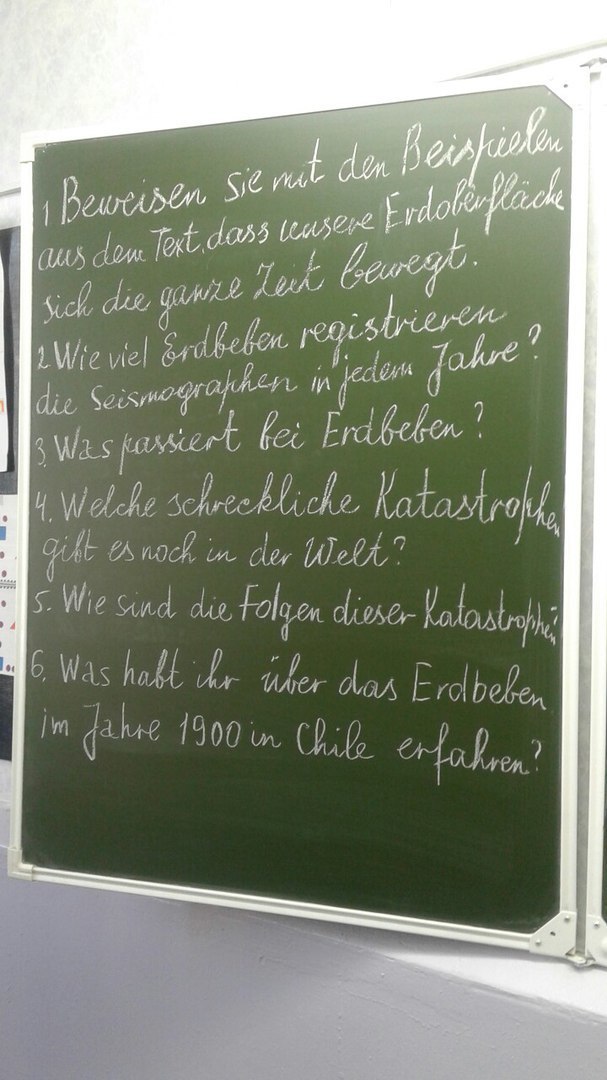 1 Beweisen sie mit den Beispielen
aus dem Text, dass unsere Erdoberfläche
sich die ganze Zeit bewegt.
2. Wie viel Erdbeben registrieren
die Seismographen in jedem Jahre?
3. Was passiert bei Erdbeben?
4. Welche schreckliche Katastrophen
gibt es noch in der Welt?
5. Wie sind die Folgen dieser Katastrophen
6. Was habt ihr über das Erdbeben
im Jahre 1900 in Chile erfahren?